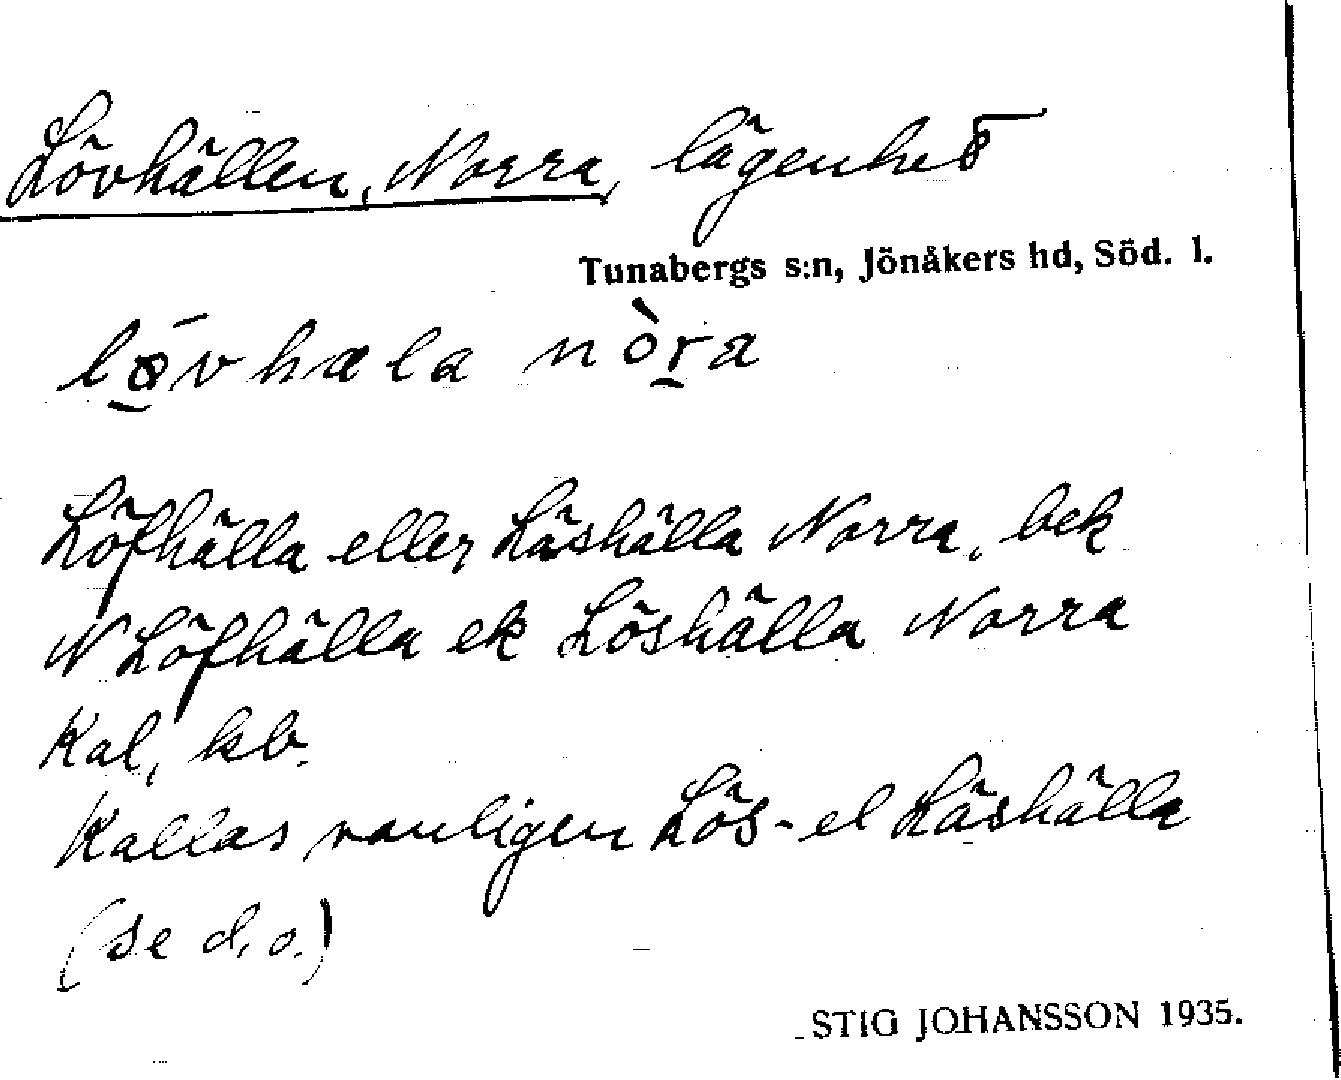 Lövhällen, Norra, lägenhet
Tunabergs s:n, Jönåkers hd, Söd. l.
lǿ̱vhæla nòṟa
Löfhälla eller Läshälla Norra, bek
N Löfhälla ek Löshälla Norra
Kal, kb.
Kallas vanligen Lös- el Läshälla
(se d. o.)
STIG JOHANSSON 1935.